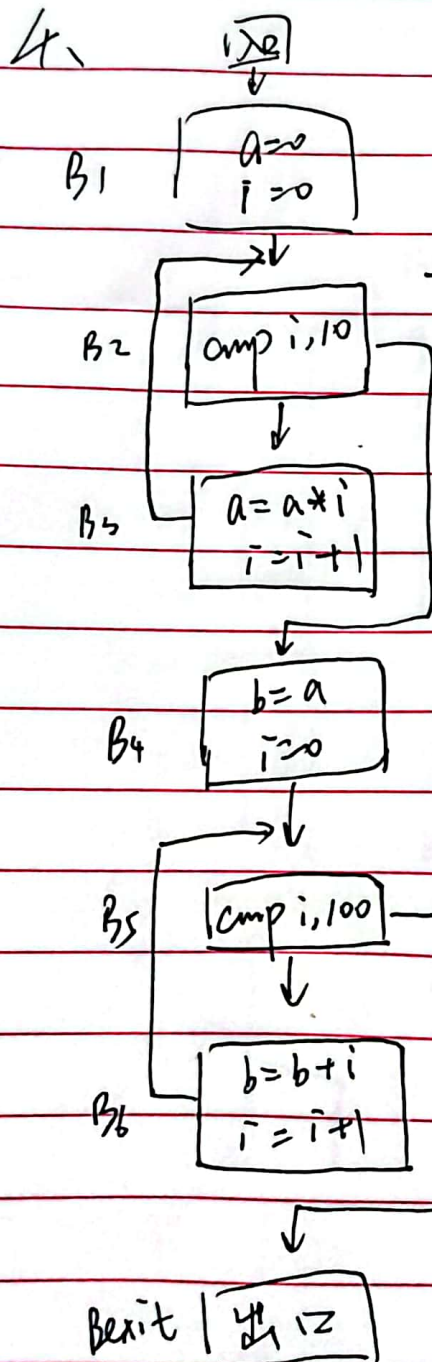 4、
入口
B1
a=0
i=0
B2
cmp i,10
B3
a=a*i
i=i+1
B4
b=a
i=0
B5
cmp i,100
B6
b=b+i
i=i+1
Bexit 出口